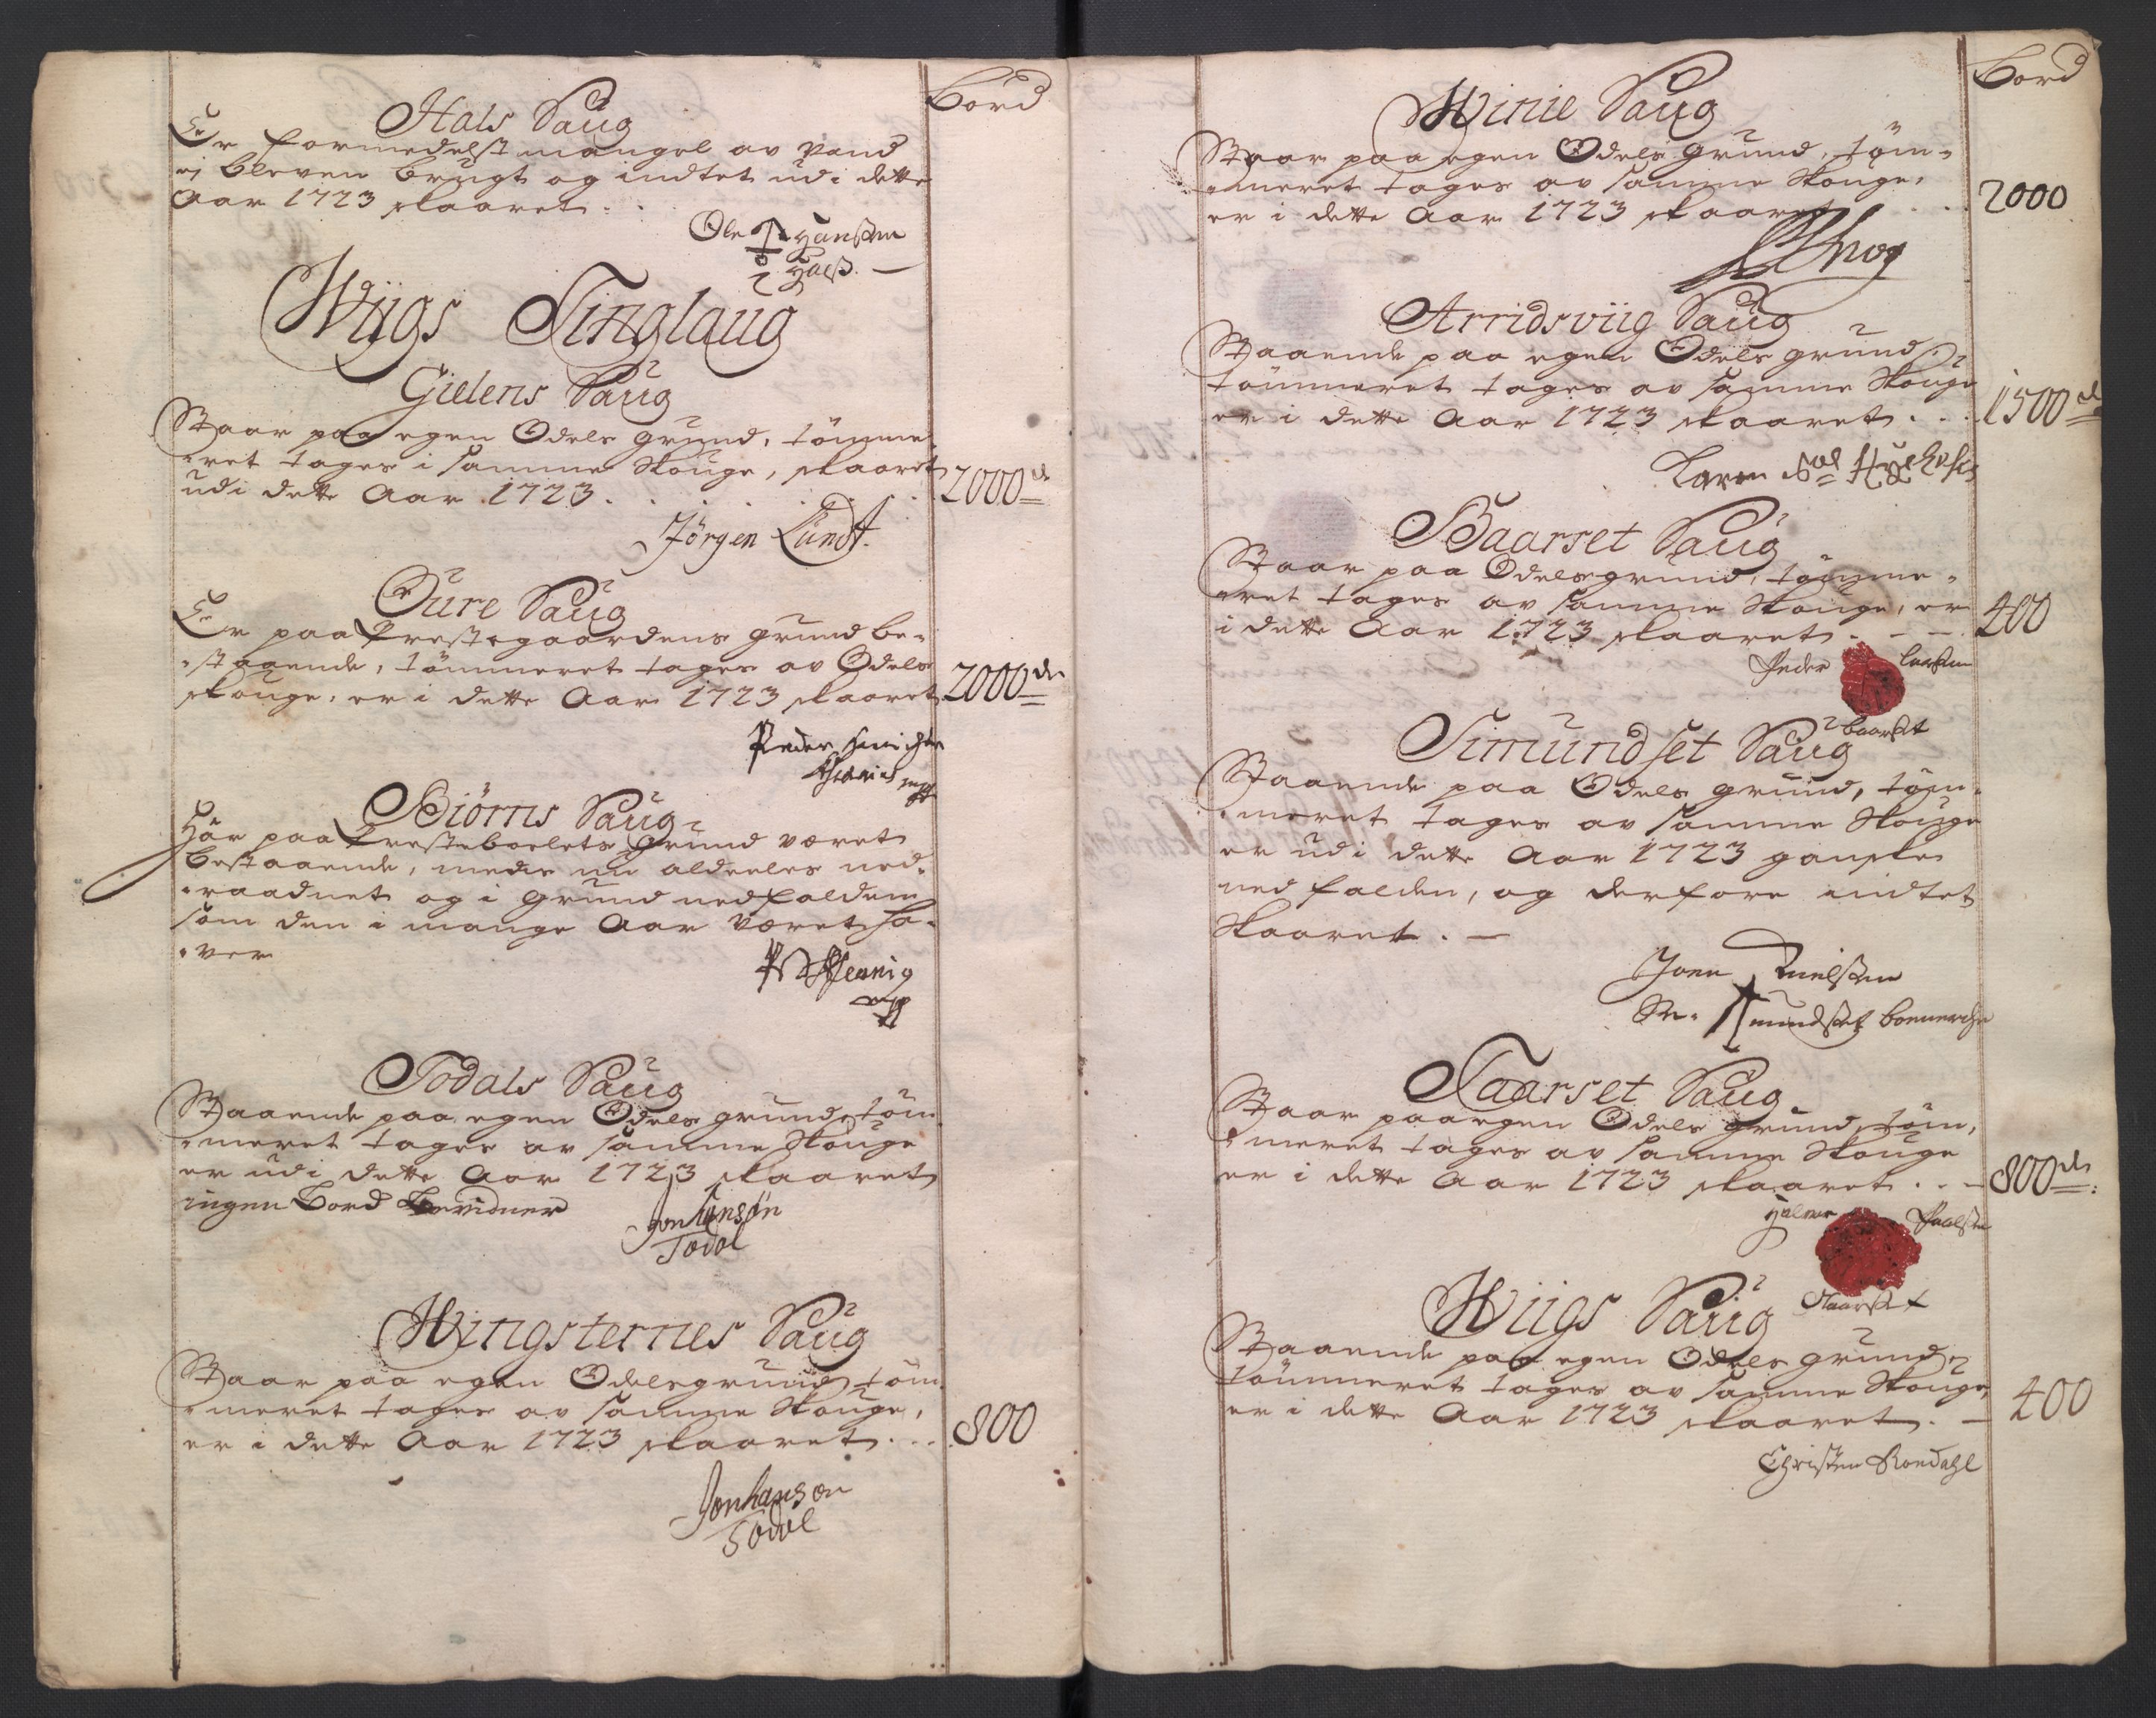 Bord
Hals Saug
Er formedelst mangel av vand
ej bleven brugt og indtet udi dette
Aar 1723 skaaret.
Ole Hansen
Hals.
Wiigs Tinglaug
Gielens Saug
Staar paa egen Odels grund, tömme-
-ret tages i samme Skouge, skaaret
udi dette Aar 1723. 2000 de
Jörgen Lundt.
Oure Saug
Er paa Prestegaardens grund be-
-staaende, tömmeret tages av Odels
skouge, er i dette Aar 1723 skaaret 2000 de
Peder
Biörns Saug
Har paa Presteboelets grund været
bestaaende, mens nu aldeeles ned-
-raadnet og i grund nedfalden
som den i mange Aar været ha-
-ver
Todals Saug
Staaende paa egen Odels grund, töm-
-meret tages av samme Skouge
er udi dette Aar 1723 skaaret
ingen Bord
Jon hansön
Todal
Wingsternes Saug
Staar paa egen Odels grund, töm-
-meret tages av samme Skouge,
er i dette Aar 1723 skaaret... 800
Jon hanson
Todal
Bord
Winie Saug
Staar paa egen Odels grund, töm-
-meret tages av samme Skouge,
er i dette Aar 1723 skaaret . . . 2000
Arridsviig Saug
Staaende paa egen Odels grund,
tömmeret tages av samme Skouge
er i dette Aar 1723 skaaret . . . 1500 de
Karen Sal
Baarset Saug
Staar paa Odels grund, tömme-
-ret tages av samme Skouge, er
i dette Aar 1723 skaaret . - - 400
Peder Larsen
Baarset
Simundset Saug
Staaende paa Odels grund, töm-
-meret tages av samme Skouge
er udi dette Aar 1723 ganske
ned falden, og derfore indtet
Skaaret. -
Joen Nielsen
Si mundset boemerche
Taarset Saug
Staar paa egen Odels grund, töm-
-meret tages av samme Skouge
er i dette Aar 1723 skaaret . . - 800 de
Halvor Paalsen
Taarset
Wiigs Saug
Staaende paa egen Odels grund,
tömmeret tages av samme Skouge,
er i dette Aar 1723 skaaret. - 400
Christen Roedahl